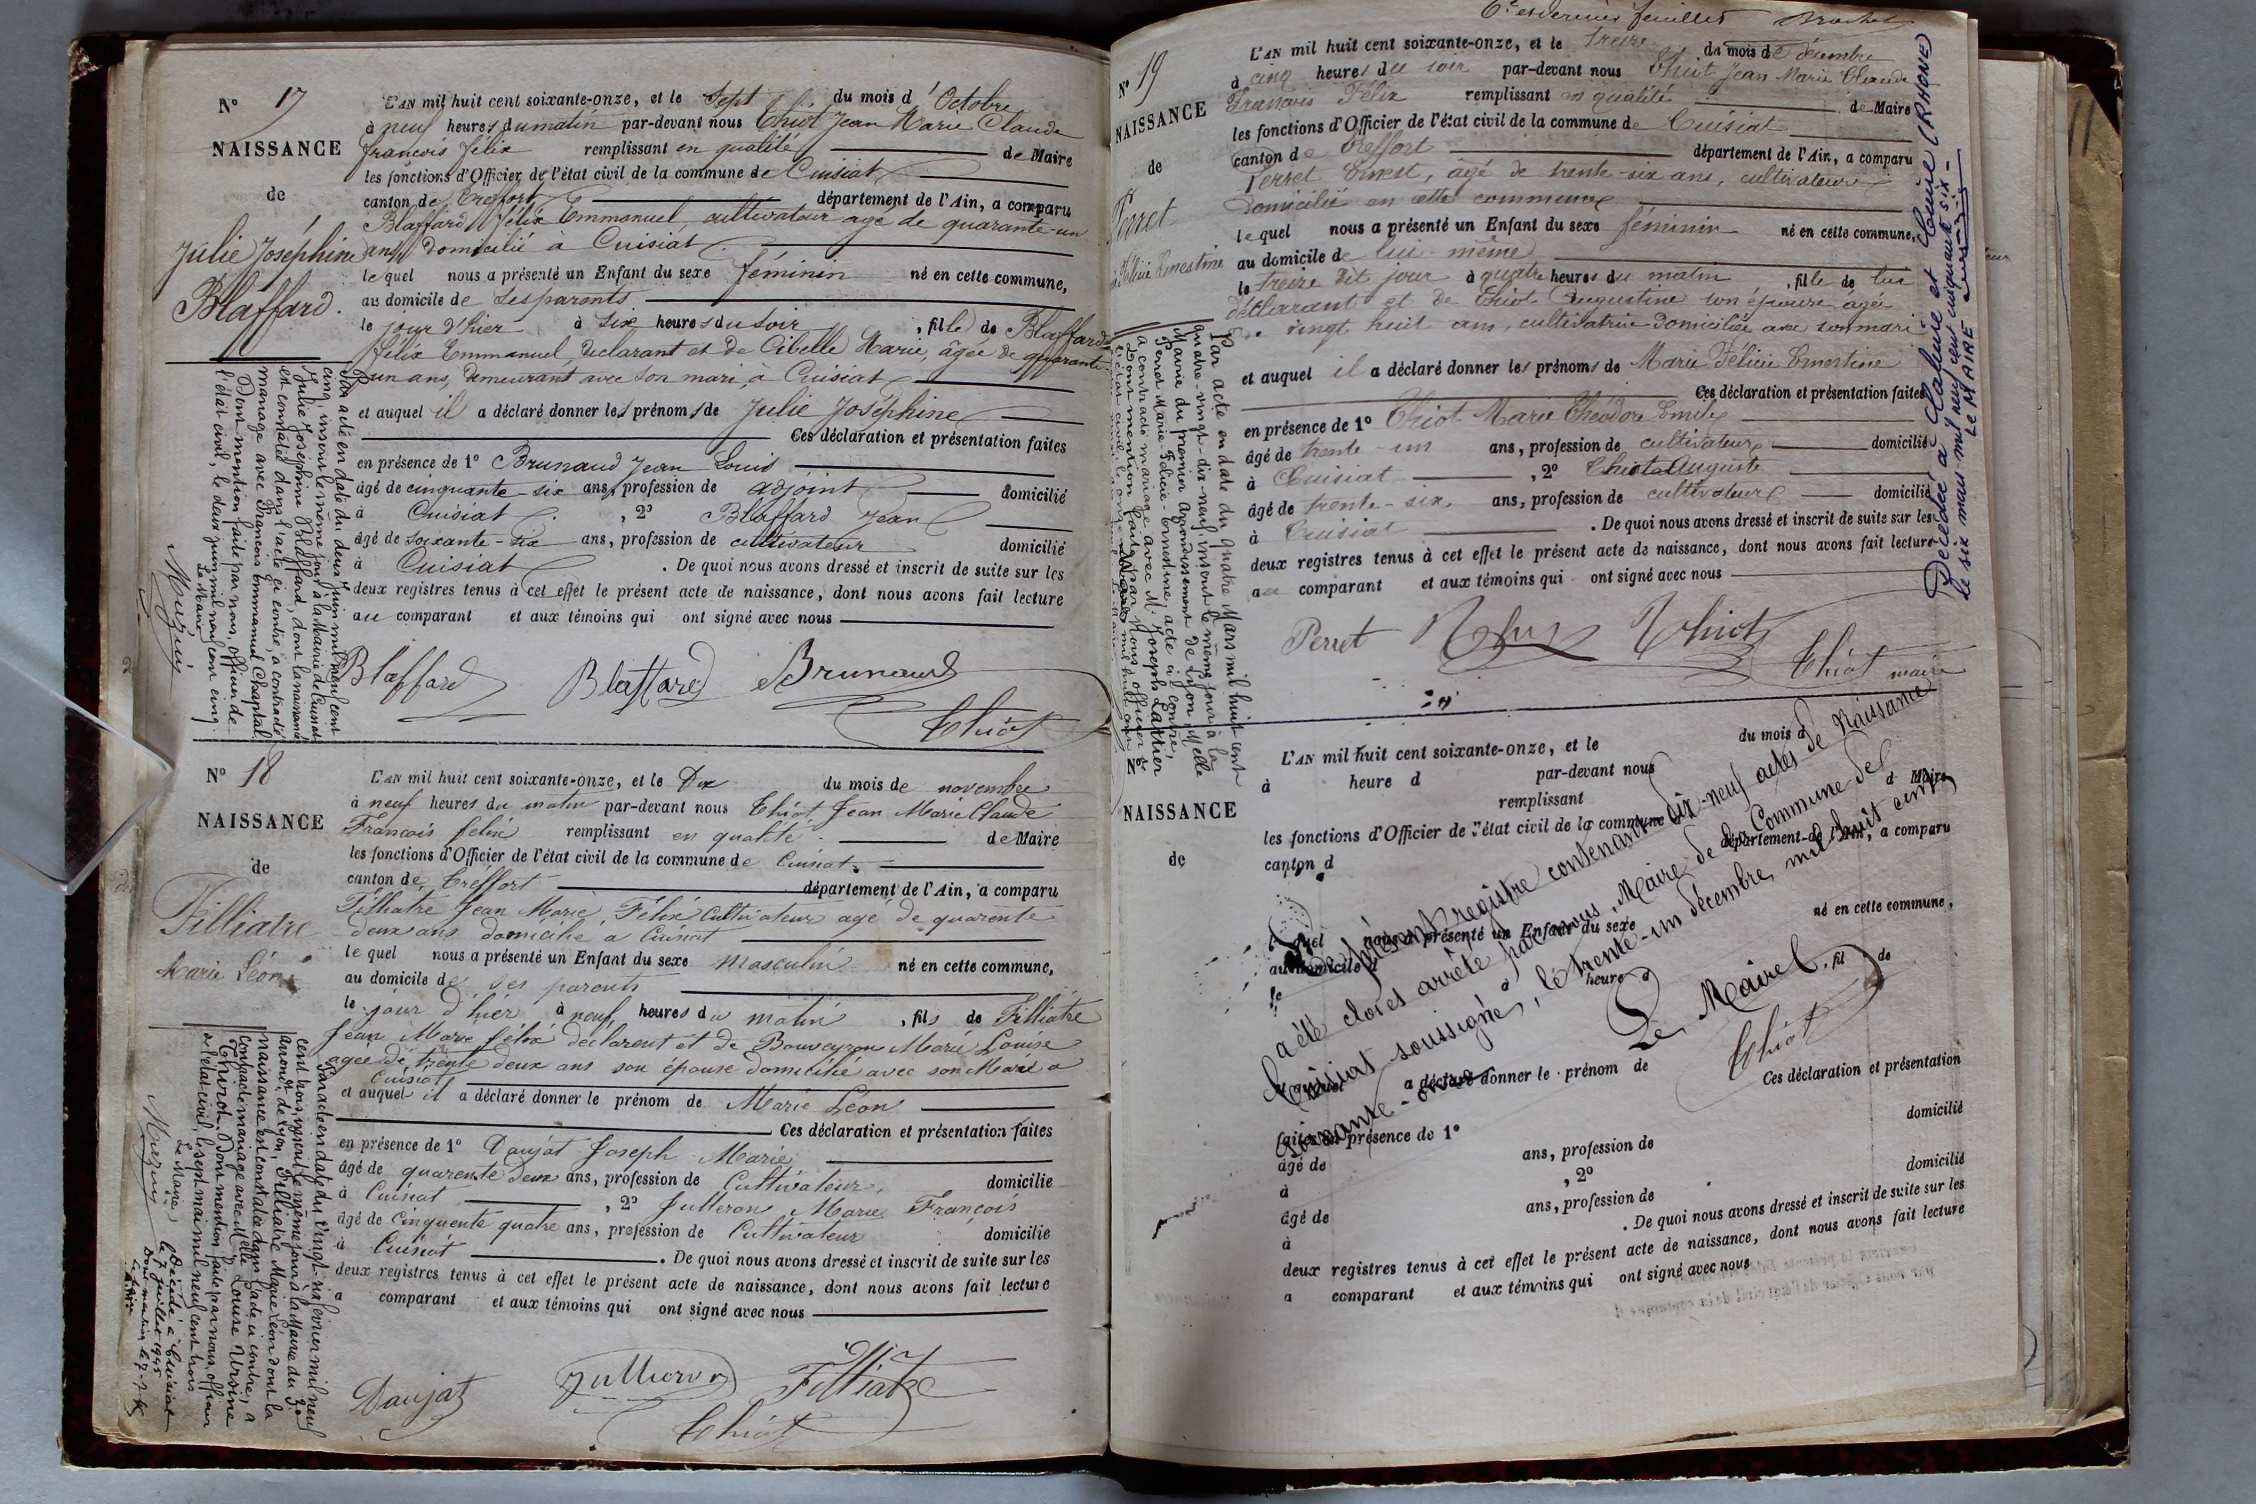 N° 17
NAISSANCE
de
Julie Joséphine
Blaffard.
L'AN mil huit cent soixante-onze, et le sept du mois d'Octobre
à neuf heures du matin par-devant nous Thiot Jean Marie Claude
françois félix remplissant en qualité de Maire
les fonctions d'Officier de l'état civil de la commune de Cuisiat
canton de Treffort département de l'Ain, a comparu
Blaffard félix Emmanuel, cultivateur age de quarante-un
ans, domicilié à Cuisiat
le quel nous a présenté un Enfant du sexe féminin né en cette commune,
au domicile de ses parents
le jour d'hier à six heures du soir, fille de Blaffard
félix Emmanuel, declarant et de Cibelle Marie, âgée de quarante
un ans, demeurant avec son mari, à Cuisiat
et auquel il a déclaré donner les prénoms de Julie Joséphine
Ces déclaration et présentation faites
en présence de 1° Brunaud Jean Louis
âgé de cinquante-six ans, profession de adjoint domicilié
à Cuisiat, 2° Blaffard Jean
âgé de soixante-six ans, profession de cultivateur domicilié
à Cuisiat. De quoi nous avons dressé et inscrit de suite sur les
deux registres tenus à cet effet le présent acte de naissance, dont nous avons fait lecture
au comparant et aux témoins qui ont signé avec nous
Blaffard Blaffard Brunaud
Thiot
Par acte en date du deux Juin mil neuf cent
cinq, inscrit le même jour à la Mairie de Cuisiat
Julie Joséphine Blaffard, dont la naissance
est constatée dans l'acte ci contre, a contracté
mariage avec François Emmanuel Chaptal.
Dont mention faite par nous, officier de
l'état civil, le deux juin mil neuf cent cinq.
Le Maire
N° 18
NAISSANCE
de
Filliatre
Marie Léon
L'AN mil huit cent soixante-onze, et le Dix du mois de novembre
à neuf heures du matin par-devant nous Thiot Jean Marie Claude
François félix remplissant en qualité de Maire
les fonctions d'Officier de l'état civil de la commune de Cuisiat
canton de Treffort département de l'Ain, a comparu
Filliatre Jean Marie Félix Cultivateur agé de quarente
deux ans domicilié a Cuisiat
le quel nous a présenté un Enfant du sexe masculin né en cette commune,
au domicile de ses parents
le jour d'hier à neuf heures du matin, fils de Filliatre
Jean Marie félix déclarent et de Bouveyron Marie Louise
agée de trente deux ans son épouse domicilié avec son Mari a
Cuisiat
et auquel il a déclaré donner le prénom de Marie Léon
Ces déclaration et présentation faites
en présence de 1° Daujat Joseph Marie
âgé de quarente deux ans, profession de Cultivateur, domicilie
à Cuisiat, 2° Jullieron Marie François
âgé de cinquente quatre ans, profession de Cultivateur domicilie
à Cuisiat. De quoi nous avons dressé et inscrit de suite sur les
deux registres tenus à cet effet le présent acte de naissance, dont nous avons fait lecture
a comparant et aux témoins qui ont signé avec nous
Daujat Jullieron Filliatre
Thiot
Par acte en date du vingt-six février mil neuf
cent trois, inscrit le même jour à la Mairie du 3e
arront de Lyon, Filliatre Marie Léon dont la
naissance est constatée dans l'acte ci contre, a
contracté mariage avec Melle Louise Ursine
Dont mention faite par nous, officier
de l'état civil, le sept mai mil neuf cent trois
Le Maire
Décédé à Cuisiat
le 7 juillet 1945
N° 19
NAISSANCE
de
Perret
Marie Félicie Ernestine
L'AN mil huit cent soixante-onze, et le treize du mois de décembre
à cinq heures du soir par-devant nous Thiot Jean Marie Claude
François Félix remplissant en qualité de Maire
les fonctions d'Officier de l'état civil de la commune de Cuisiat
canton de Treffort département de l'Ain, a comparu
Perret Ernest, âgé de trente-six ans, cultivateur
domicilié en cette commune
le quel nous a présenté un Enfant du sexe féminin né en cette commune,
au domicile de lui-même
le treize dit jour à quatre heures du matin, fille de lui
déclarant et de Thiot Augustine son épouse âgée
de vingt huit ans, cultivatrice domiciliée avec son mari
et auquel il a déclaré donner les prénoms de Marie Félicie Ernestine
Ces déclaration et présentation faites
en présence de 1° Thiot Marie Théodore Emile
âgé de trente-un ans, profession de cultivateur domicilié
à Cuisiat, 2° Thiot Auguste
âgé de trente-six ans, profession de cultivateur domicilié
à Cuisiat. De quoi nous avons dressé et inscrit de suite sur les
deux registres tenus à cet effet le présent acte de naissance, dont nous avons fait lecture
au comparant et aux témoins qui ont signé avec nous
Perret Thiot
Thiot maire
Par acte en date du quatre Mars mil huit cent
quatre-vingt-dix-neuf, inscrit le même jour à la
Mairie du premier Arrondissement de Lyon, Melle
Perret Marie-Félicie-Ernestine, acte ci contre,
a contracté mariage avec M. Joseph Lattier
Dont mention faite par nous officier de
Décédée à Caluire et Cuire (RHONE)
le six mars mil neuf cent cinquante six -
LE MAIRE
N°
NAISSANCE
de
L'AN mil huit cent soixante-onze, et le du mois d
à heure d par-devant nous
remplissant d Maire
les fonctions d'Officier de l'état civil de la commune
canton d département de l'Ain, a comparu
le quel nous a présenté un Enfant du sexe né en cette commune,
au domicile d
le à heure d, fil de
a déclaré donner le prénom de
Ces déclaration et présentation
faites en présence de 1°
âgé de ans, profession de domicilié
à, 2°
âgé de ans, profession de domicilié
à. De quoi nous avons dressé et inscrit de suite sur les
deux registres tenus à cet effet le présent acte de naissance, dont nous avons fait lecture
a comparant et aux témoins qui ont signé avec nous
Le présent registre contenant dix-neuf actes de Naissance
a été clos et arrêté par nous, Maire de la Commune de
Cuisiat soussigné, le trente-un décembre mil huit cent
soixante-onze
Le Maire
Thiot